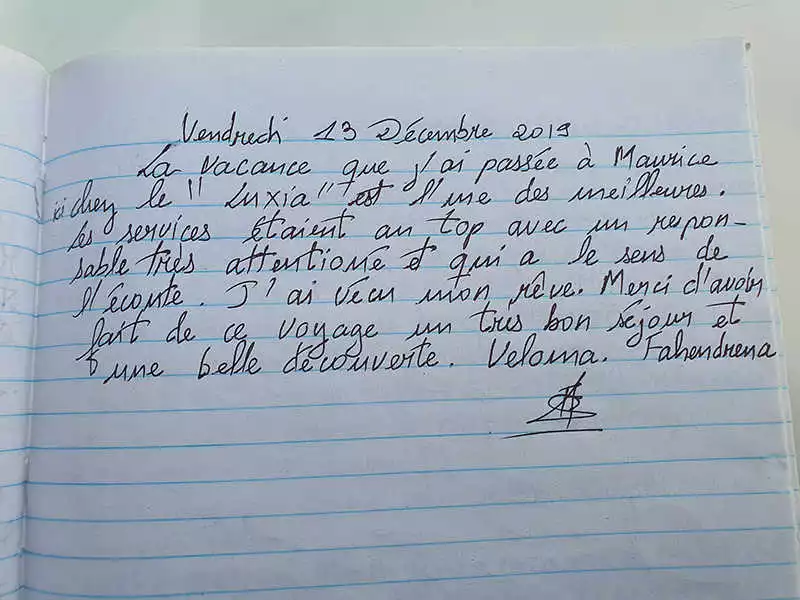 Vendredi 13 Décembre 2019
La vacance que j'ai passée à Maurice
ici chez le "Luxia" est l'une des meilleures.
Les services étaient au top avec un repon-
sable très attentioné et qui a le sens de
l'écoute. J'ai vécu mon rêve. Merci d'avoir
fait de ce voyage un très bon séjour et
une belle découverte. Veloma. Fahendrena